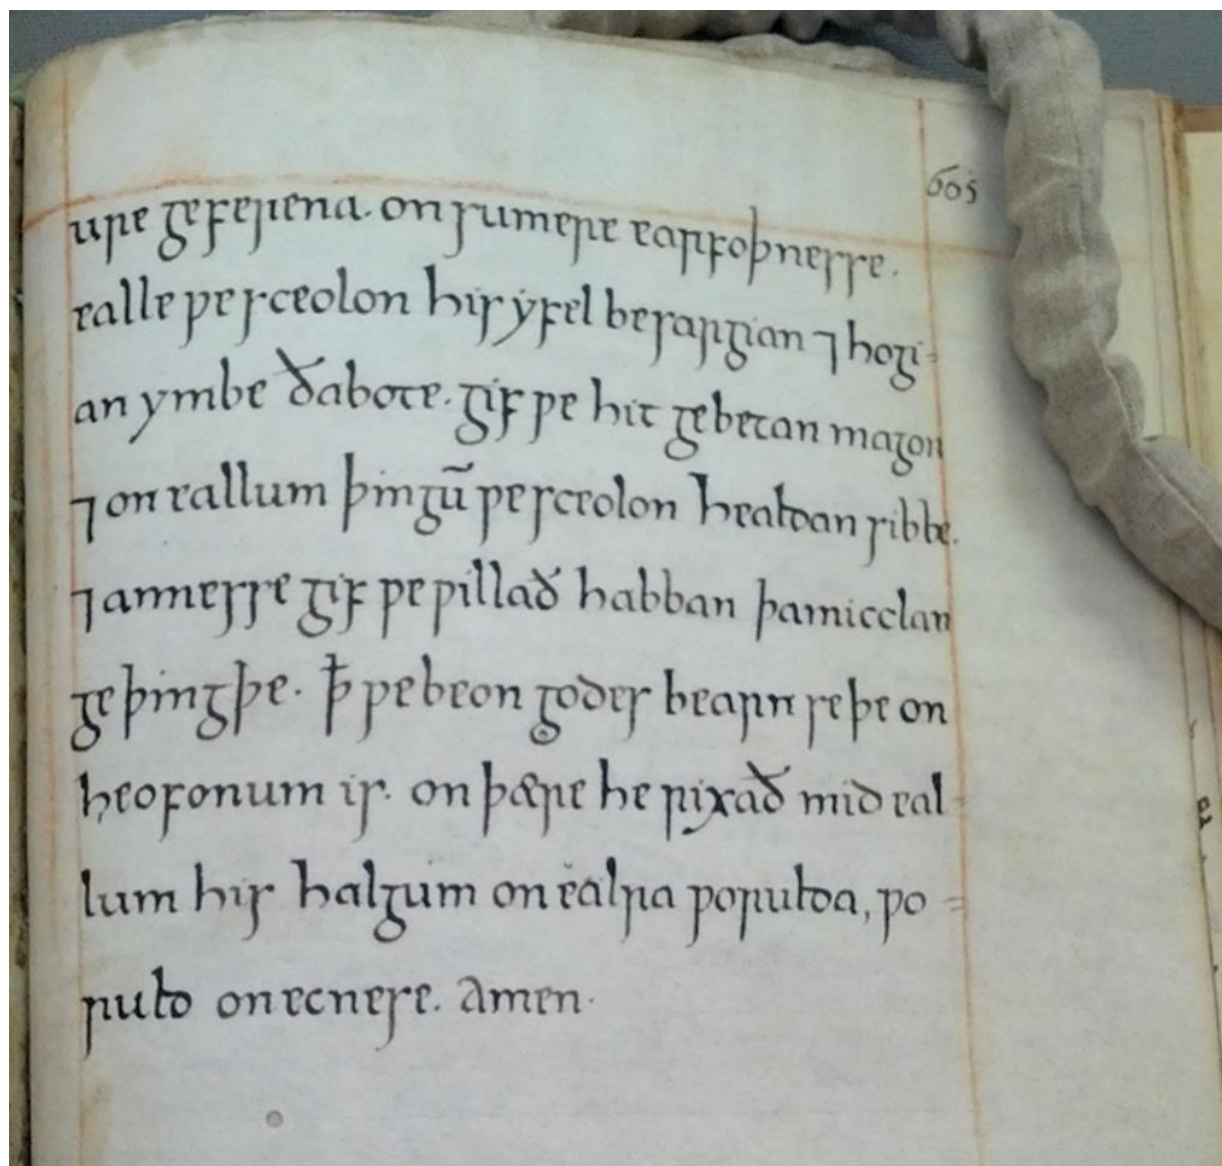 605
ure geferena. on sumere earfoþnesse.
ealle ƿe sceolon his ẏfel besargian ⁊ hogi=
an ymbe ðabote. gif ƿe hit gebetan magon
⁊ on eallum þingū ƿe sceolon healdan sibbe.
⁊ annesse gif ƿe ƿillað habban þamicclan
geþingþe. ꝥ ƿe beon godes bearn seþe on
heofonum is. on þære he rixað mid eal=
lum his halgum on ealra ƿorulda, ƿo=
ruld on ecnese. Amen.